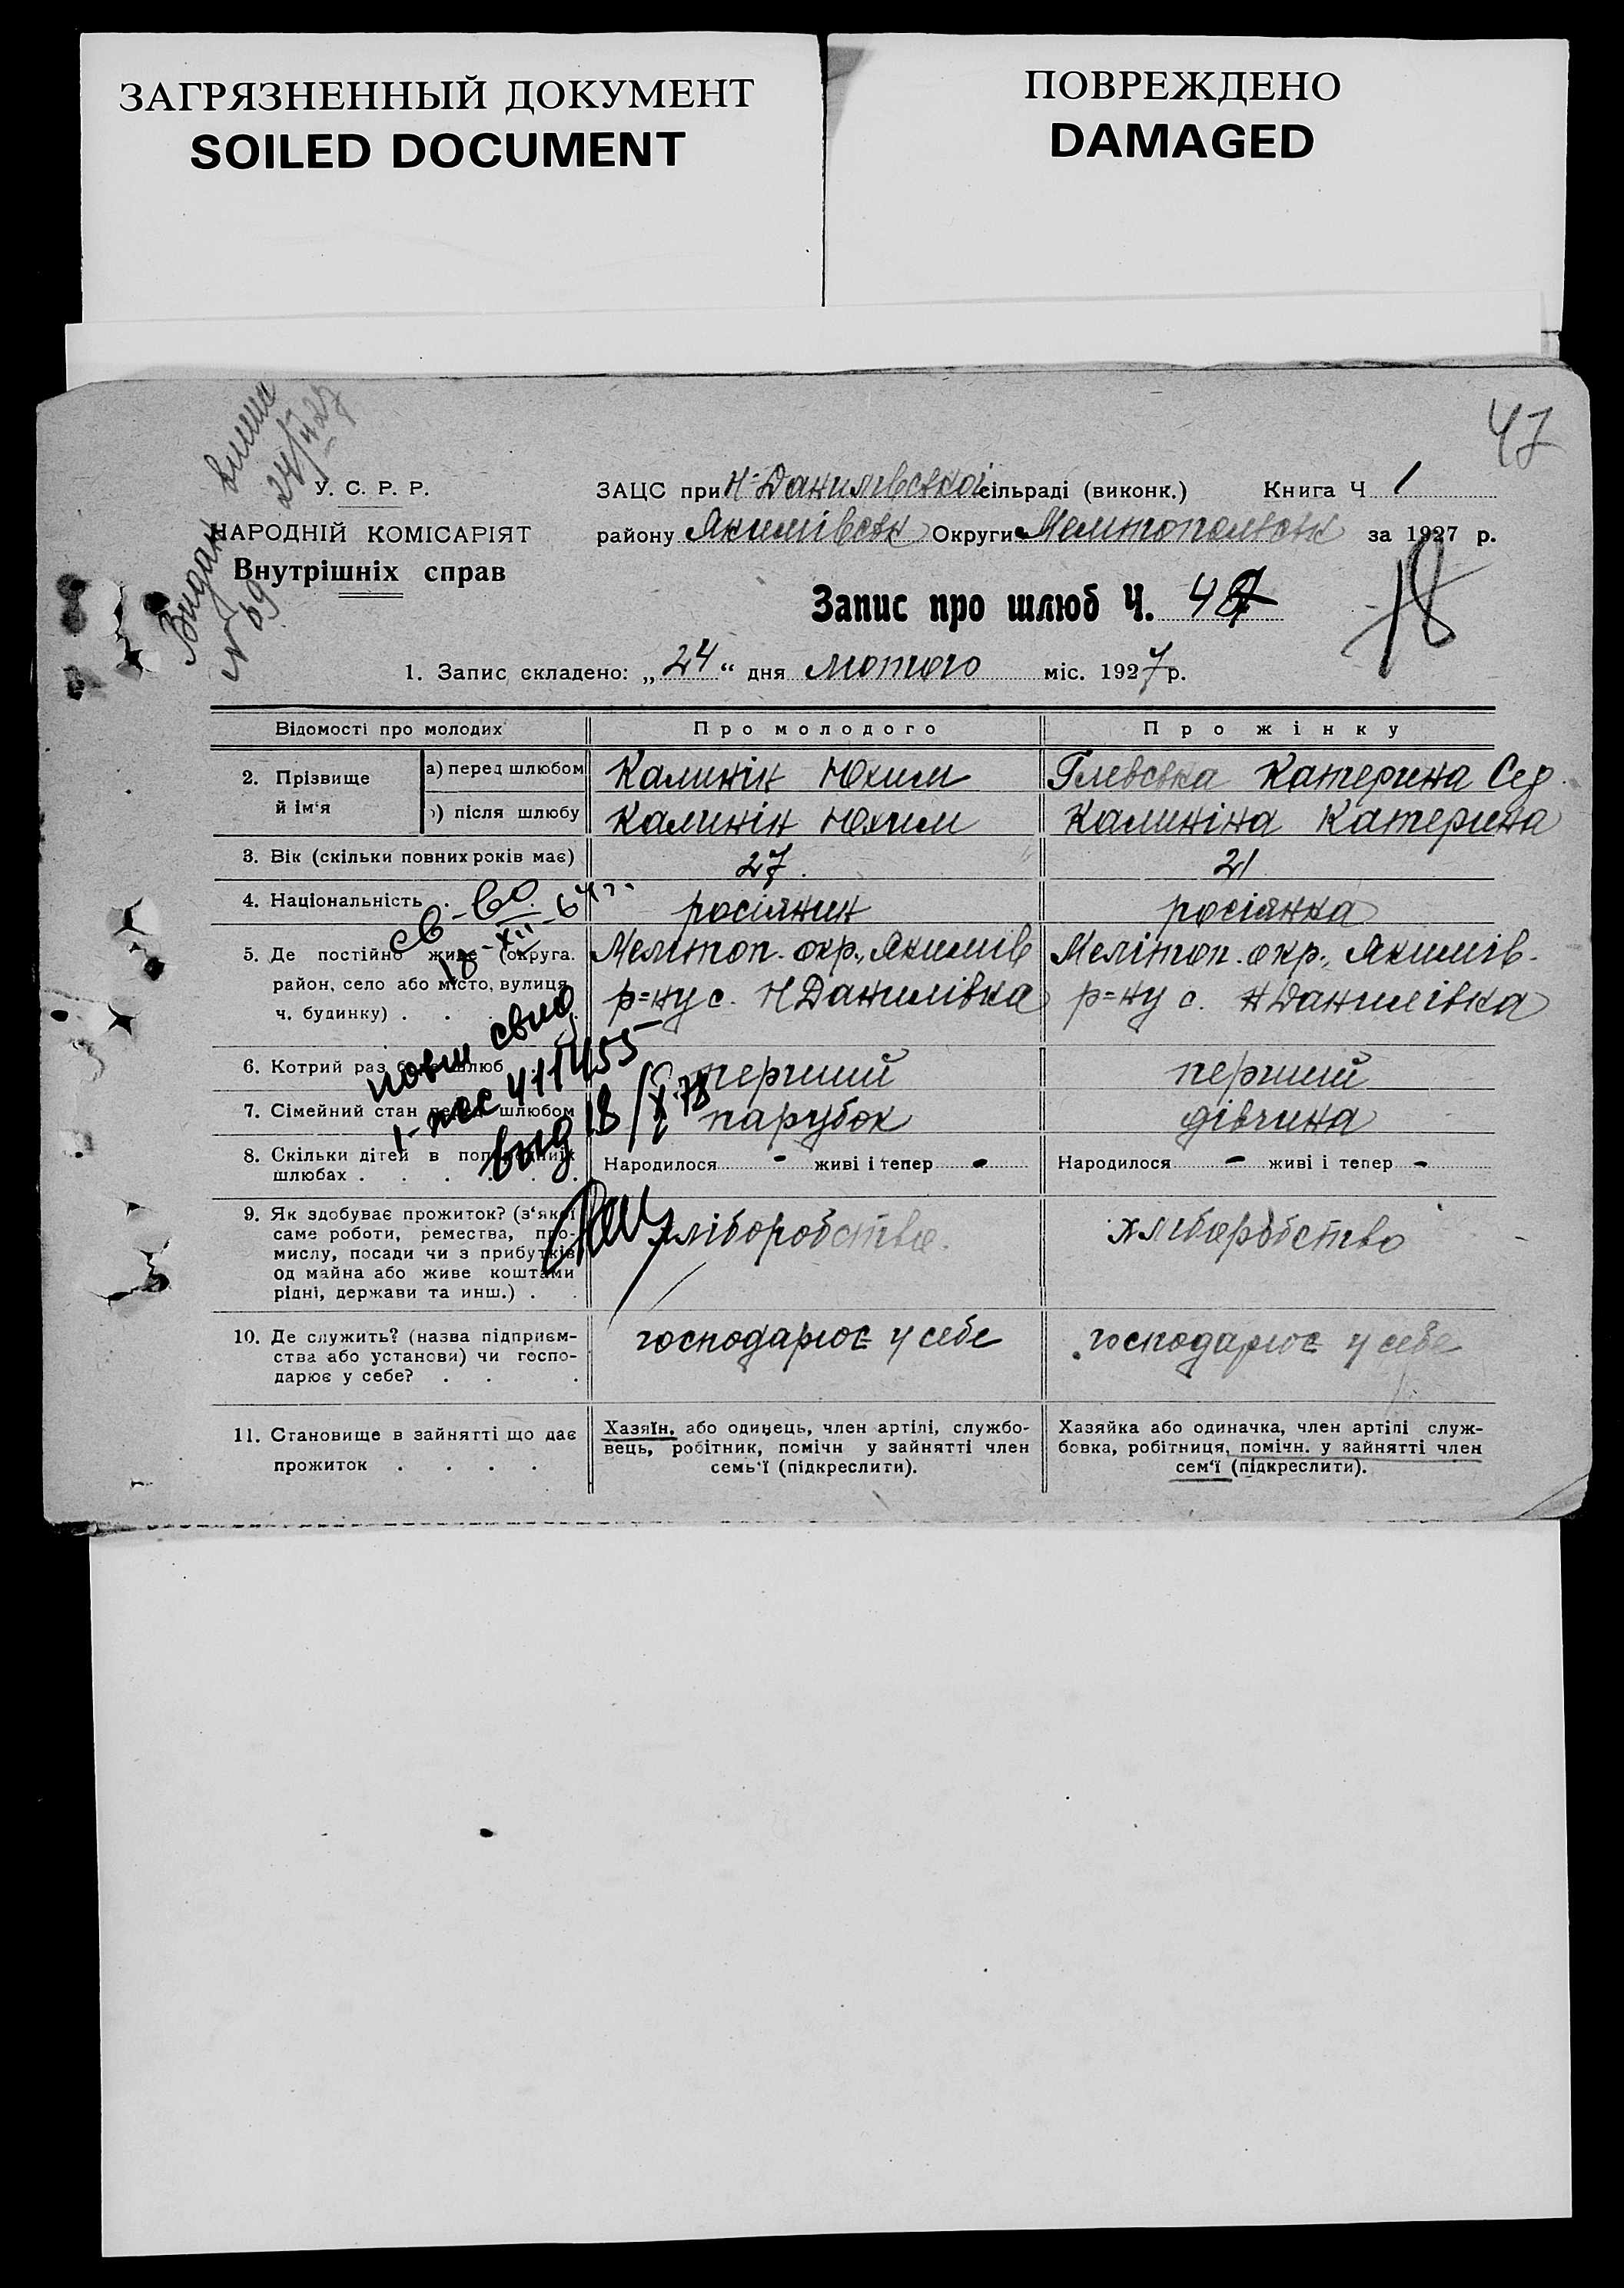 ЗАГРЯЗНЕННЫЙ ДОКУМЕНТ
SOILED DOCUMENT
ПОВРЕЖДЕНО
DAMAGED
47
Видан
24/4 27
№ 69
У. С. Р. Р.
НАРОДНІЙ КОМІСАРІЯТ
Внутрішніх справ
ЗАЦС при Н-Данилівській сільраді (виконк.) Книга Ч 1
району Якимівськ Округи Мелітопольськ за 1927 р.
18
Запис про шлюб Ч. 47
1. Запис складено: „24“ дня лютого міс. 1927 р.
Відомості про молодих Про молодого Про жінку
2. Прізвище й ім‘я
а) перед шлюбом Калинін Юхим Катерина Сер
) після шлюбу Калинін Юхим Калиніна Катерина
3. Вік (скільки повних років має) 27. 21
4. Національність . росіянин росіянка
5. Де постійно живе (округа. район, село або місто, вулиця, ч. будинку) . .
Мелітоп. окр., Якимів р=ну с. Н Данилівка
Мелітоп. окр., Якимів. р=ну с. Н Данилівка
6. Котрий раз бере шлюб перший перший
7. Сімейний стан перед шлюбом парубок дівчина
8. Скільки дітей в попередніх шлюбах . . . . . .
Народилося - живі і тепер -
Народилося - живі і тепер -
9. Як здобуває прожиток? (з‘якої саме роботи, ремества, промислу, посади чи з прибутків од майна або живе коштами рідні, держави та инш.) . .
хліборобство.
хліборобство
10. Де служить? (назва підприємства або установи) чи господарює у себе? . . .
господарює у себе
господарює у себе
11. Становище в зайнятті що дає прожиток . . . .
Хазяїн, або одинець, член артілі, службовець, робітник, помічн у зайнятті член семь‘ї (підкреслити).
Хазяйка або одиначка, член артілі службовка, робітниця, помічн. у зайнятті член сем‘ї (підкреслити).
св-во
18-XII-64г.
повт свид
1-пос 411455
выд 18/X-78